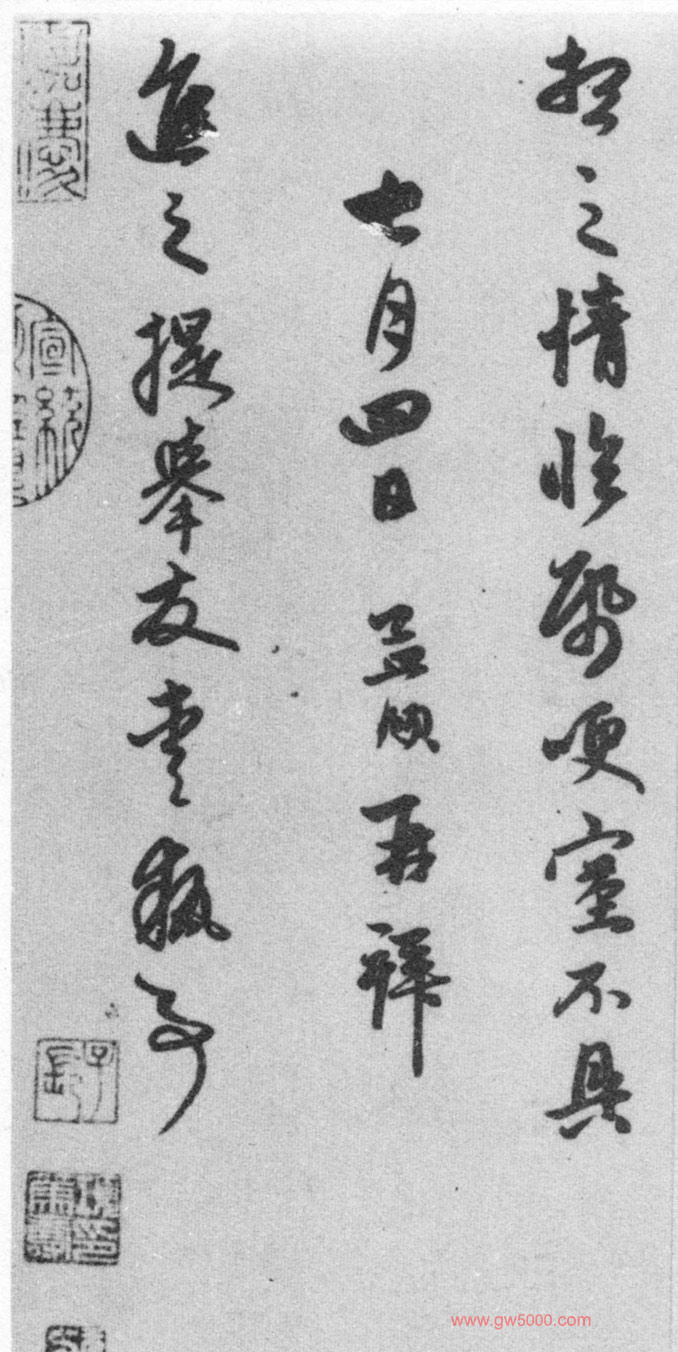 想之情臨帋哽塞不具
七月四日 孟頫再拜
進之提舉友愛執事
www.gw5000.com